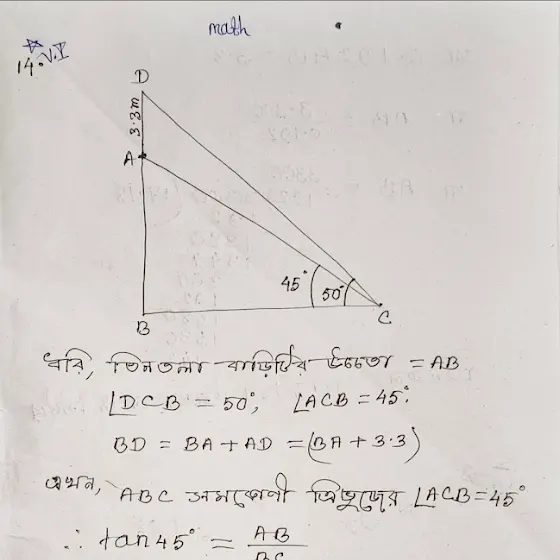 math
☆ V.I
14.
D
3.3m
A
45° 50°
B C
ধরি, তিনতলা বাড়িটির উচ্চতা = AB
∠DCB = 50°, ∠ACB = 45°.
BD = BA + AD = (BA + 3.3)
এখন, ABC সমকোণী ত্রিভুজের ∠ACB = 45°
∴ tan 45° = AB
BC